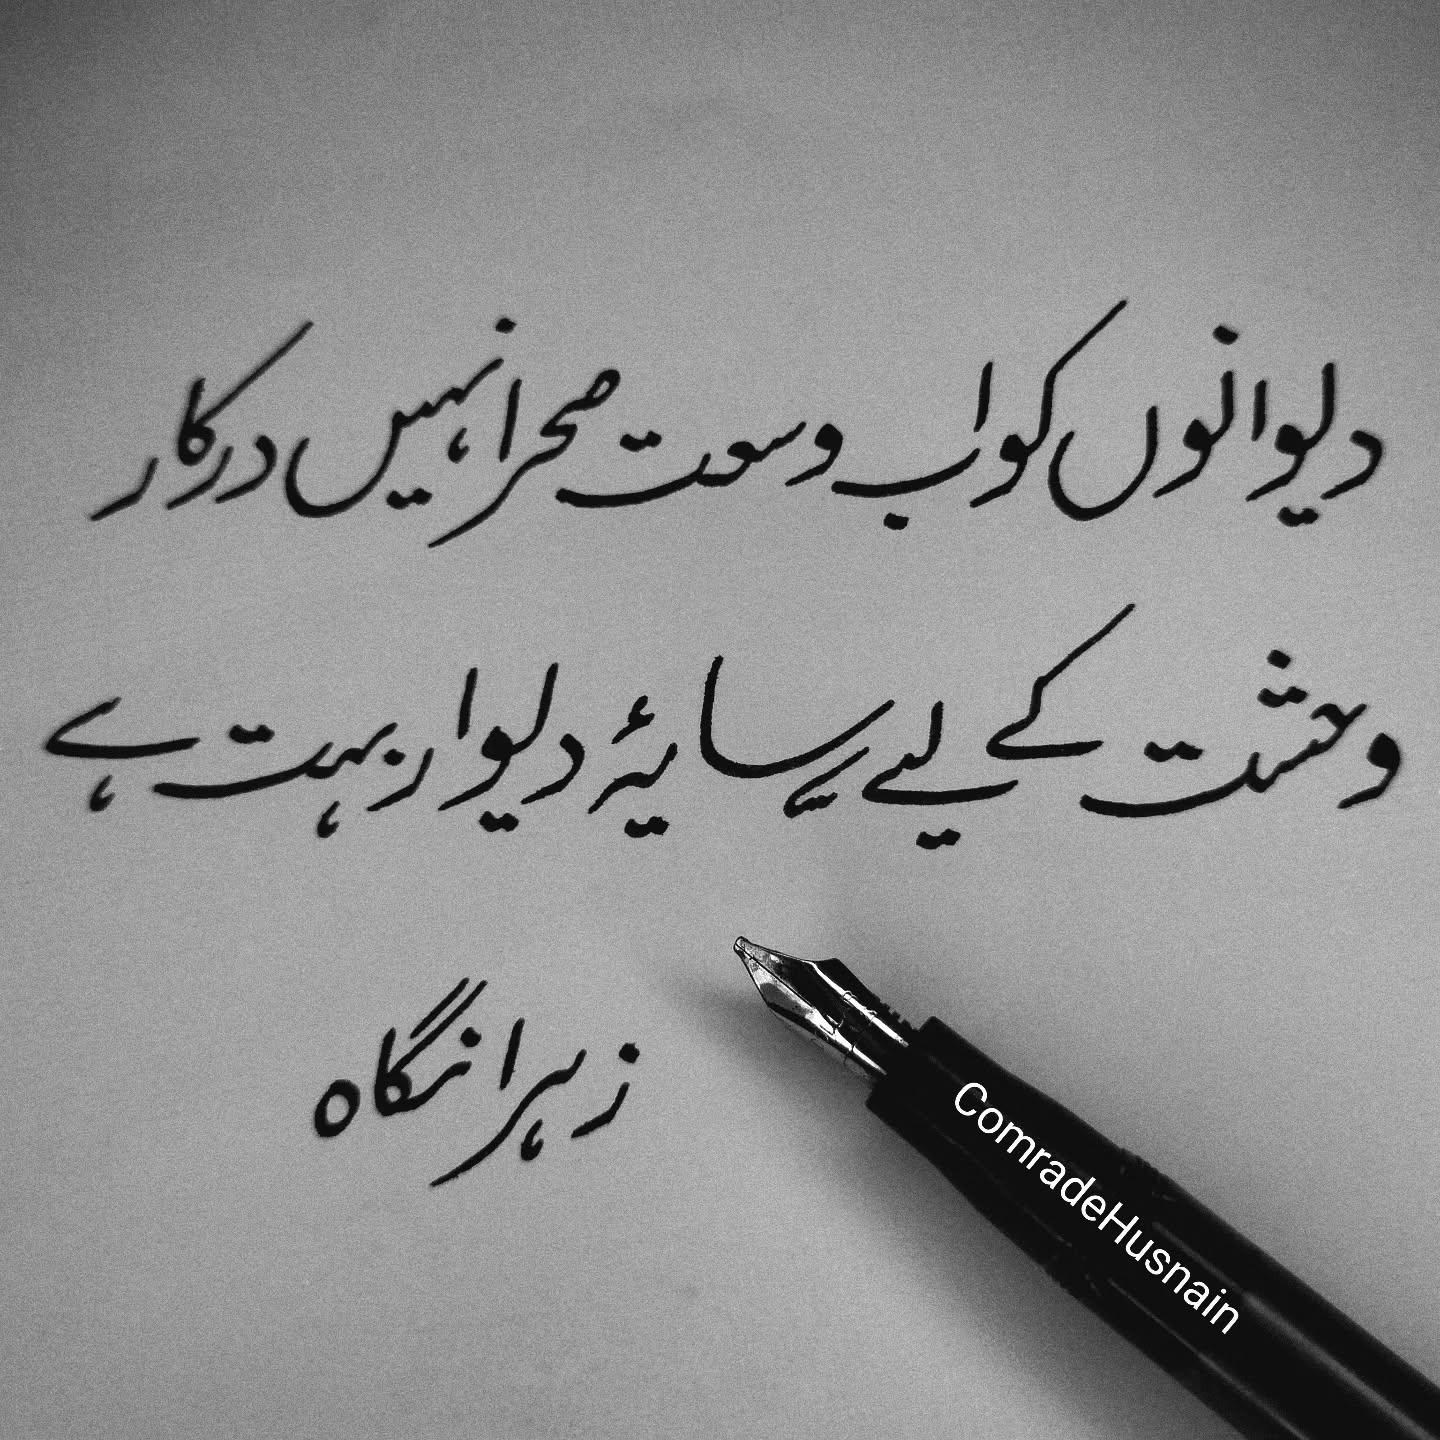 دیوانوں کو اب وسعت صحرا نہیں درکار
وحشت کے لیے سایۂ دیوار بہت ہے
زہرا نگاہ
ComradeHusnain